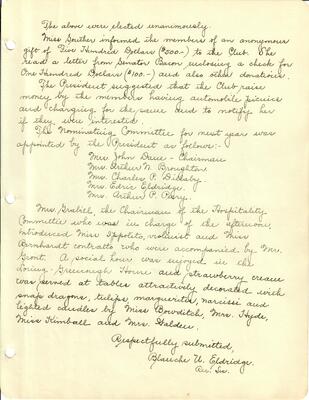 The above were elected unanimously.
Miss Smither informed the members of an anonymous
gift of Five Hundred Dollars ($500.-) to the Club. She
read a letter from Senator Bacon enclosing a check for
One Hundred Dollars ($100.-) and also other donations.
The President suggested that the Club raise
money by the members having automobile picnics
and charging for the same and to notify her
if they were interested.
The Nominating Committee for next year was
appointed by the President as follows:-
Mrs. John Drew - Chairman
Mrs. Arthur N. Broughton
Mrs. Charles P.
Mrs. Edric Eldridge.
Mrs. Arthur P. Perry.
Mrs. the Chairman of the Hospitality
Committee who was in charge of the afternoon,
introduced Miss Ippolito, violinist and Miss
Barnhardt contralto who were accompanied by Mr.
Grant. A social hour was enjoyed in the
Loring-Greenough House and strawberry cream
was served at tables attractively decorated with
snap dragons, tulips, marguerites, narcissi and
lighted candles by Miss Bowditch, Mrs. Hyde,
Miss Kimball and Mrs.
Respectfully submitted,
Blanche U. Eldridge.
Rec. Sec.